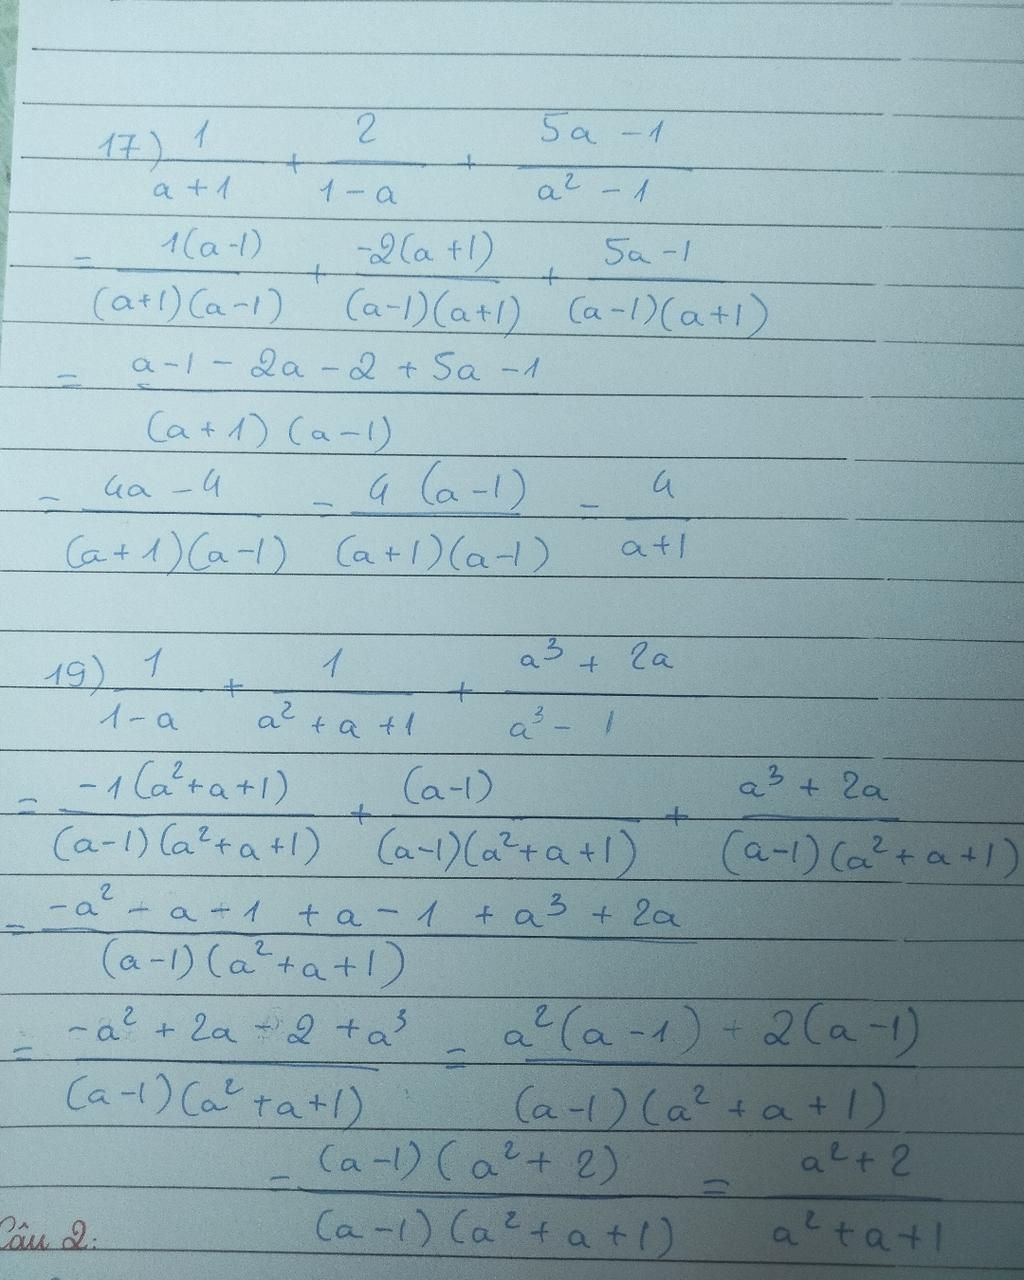 17) 1/(a+1) + 2/(1-a) + (5a-1)/(a²-1)
= 1(a-1)/((a+1)(a-1)) + -2(a+1)/((a-1)(a+1)) + (5a-1)/((a-1)(a+1))
= (a-1-2a-2+5a-1)/((a+1)(a-1))
= (4a-4)/((a+1)(a-1)) = 4(a-1)/((a+1)(a-1)) = 4/(a+1)
19) 1/(1-a) + 1/(a²+a+1) + (a³+2a)/(a³-1)
= -1(a²+a+1)/((a-1)(a²+a+1)) + (a-1)/((a-1)(a²+a+1)) + (a³+2a)/((a-1)(a²+a+1))
= (-a²-a-1+a-1+a³+2a)/((a-1)(a²+a+1))
= (-a²+2a-2+a³)/((a-1)(a²+a+1)) = (a²(a-1)+2(a-1))/((a-1)(a²+a+1))
= (a-1)(a²+2)/((a-1)(a²+a+1)) = (a²+2)/(a²+a+1)
Câu 2: